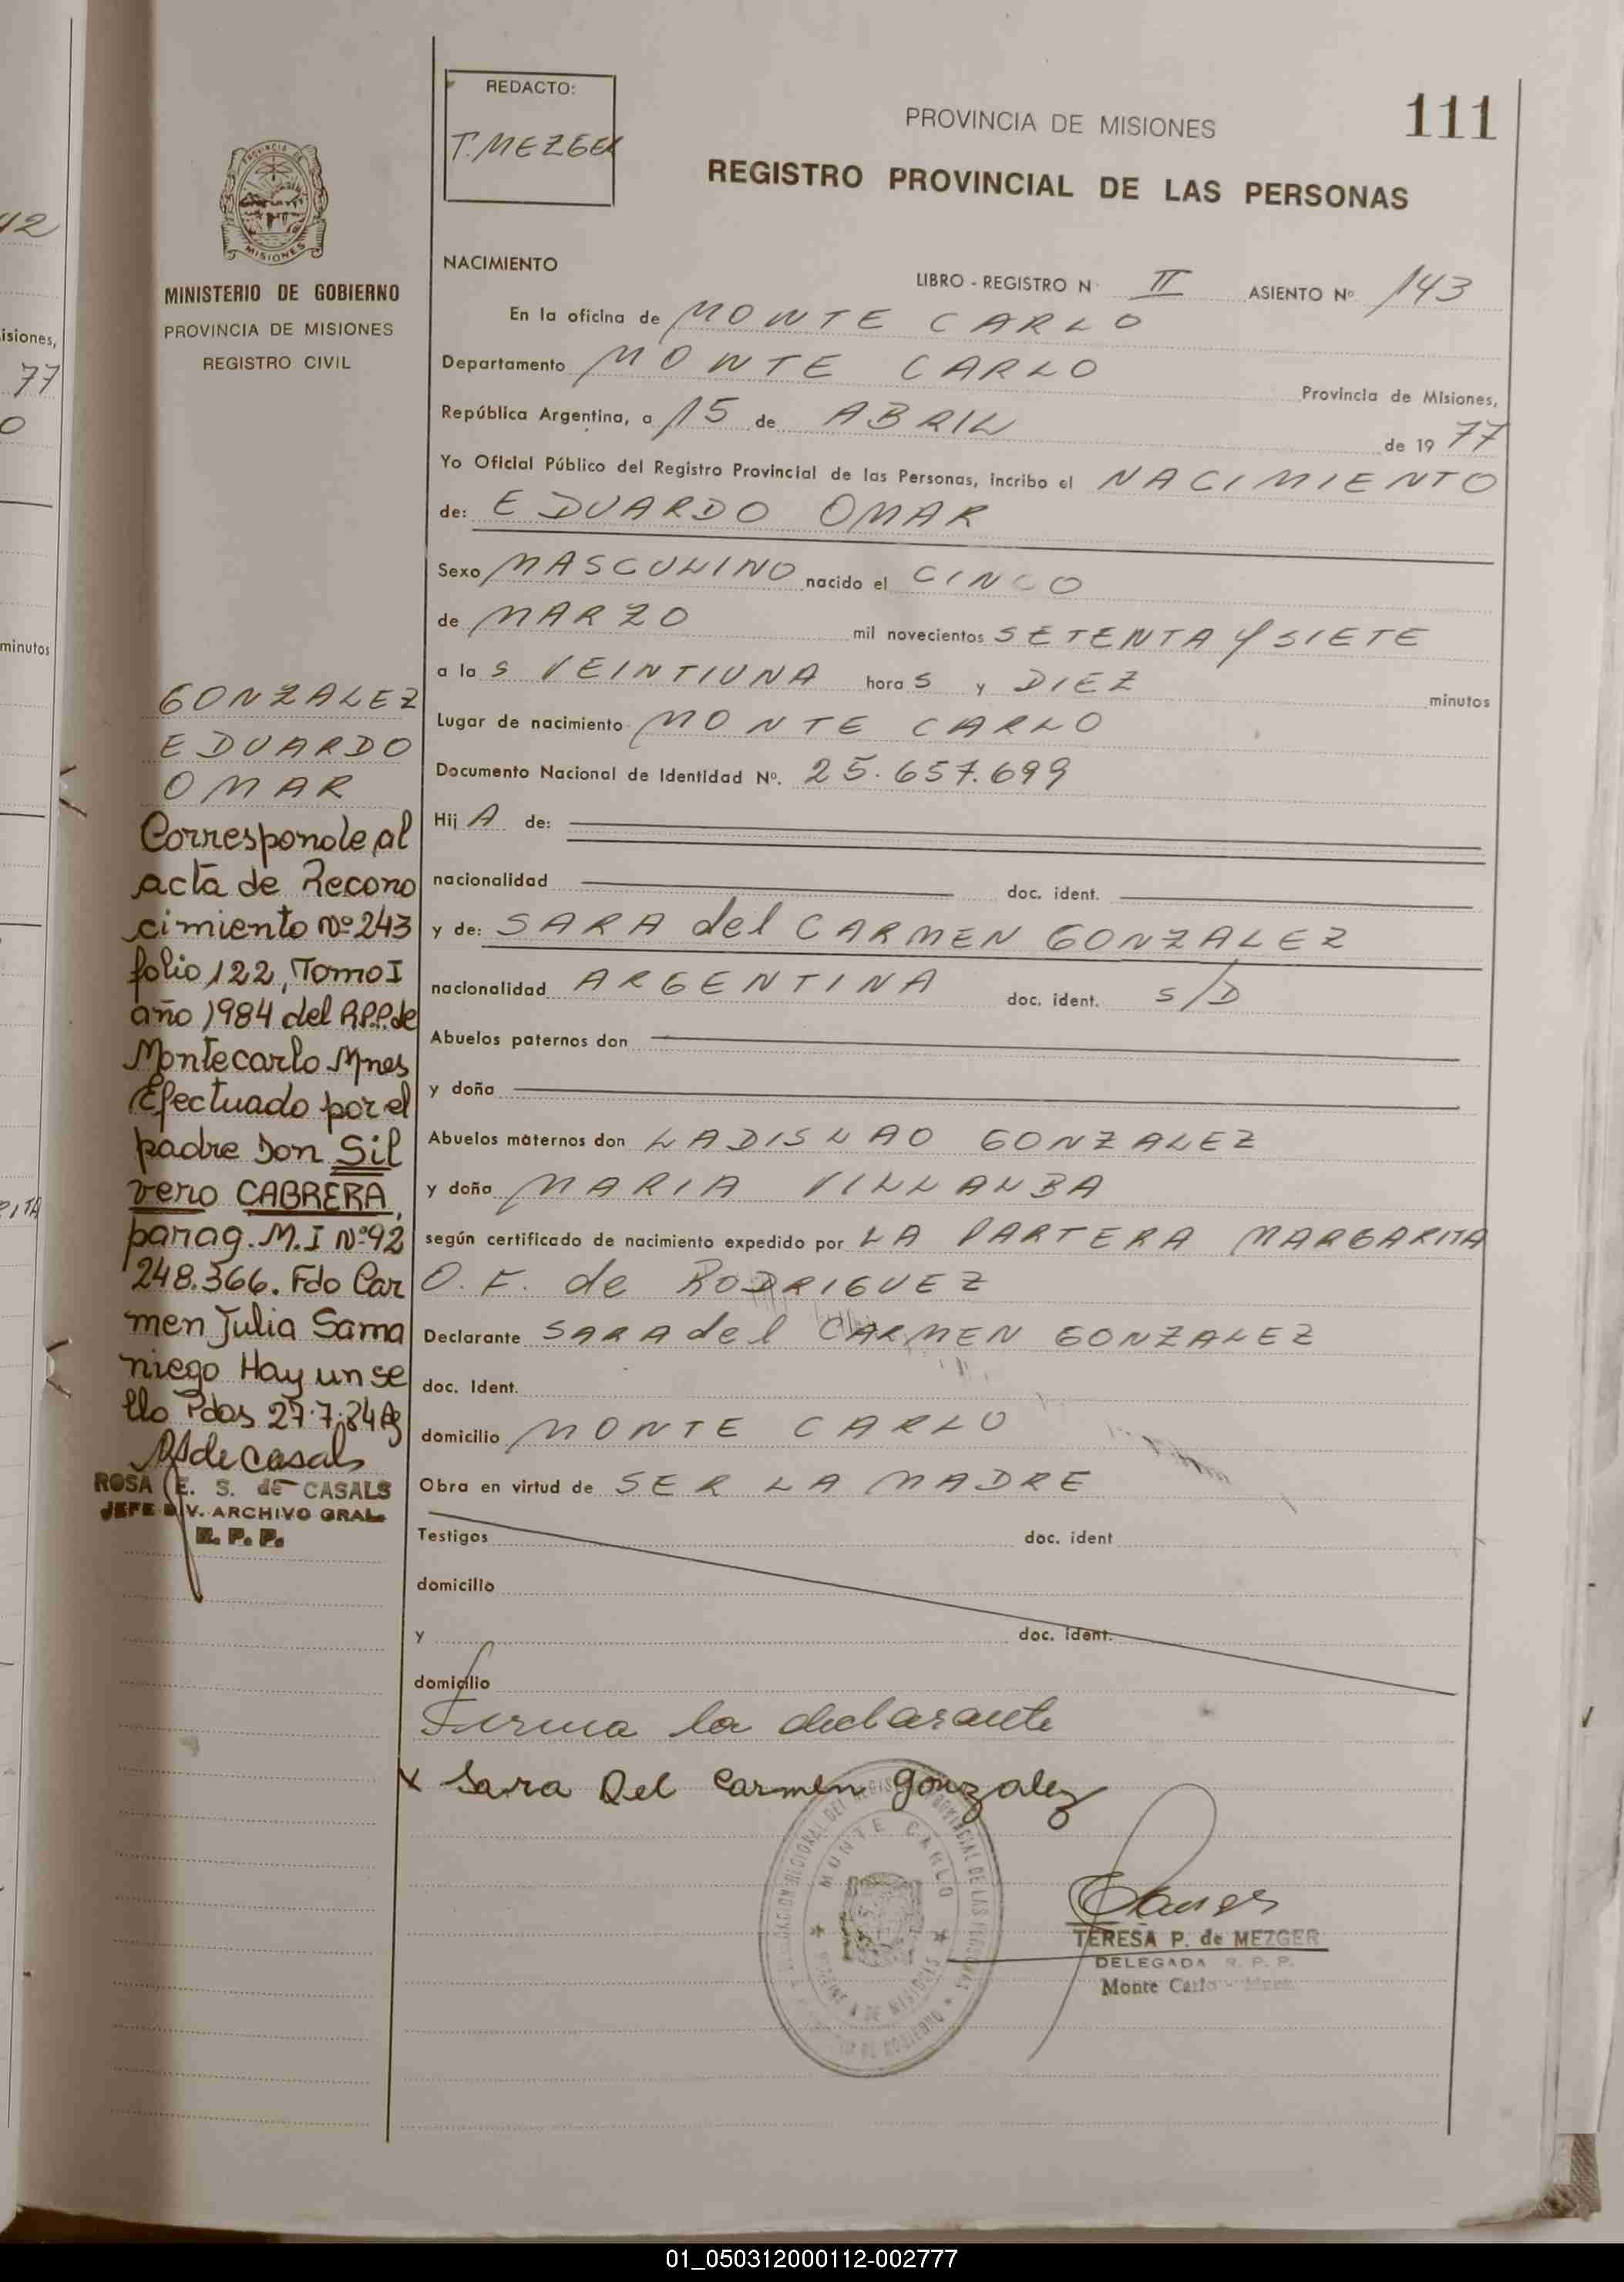 42
isiones,
77
O
minutos
RITA
MINISTERIO DE GOBIERNO
PROVINCIA DE MISIONES
REGISTRO CIVIL
GONZALEZ
EDUARDO
OMAR
Corresponde al
acta de Recono
cimiento Nº 243
folio 122, Tomo I
año 1984 del R.P.P. de
Montecarlo Mnes
Efectuado por el
padre Don Sil
verio CABRERA,
parag. M.I Nº 92
248.366. Fdo Car
men Julia Sama
niego Hay un se
llo Pdas 27.7.84
de Casals
ROSA E. S. de CASALS
JEFE DIV. ARCHIVO GRAL.
R. P. P.
REDACTO:
T. MEZGER
PROVINCIA DE MISIONES
111
REGISTRO PROVINCIAL DE LAS PERSONAS
NACIMIENTO
LIBRO - REGISTRO N· II ASIENTO Nº 143
En la oficina de MONTE CARLO
Departamento MONTE CARLO Provincia de Misiones,
República Argentina, a 15 de ABRIL de 1977
Yo Oficial Público del Registro Provincial de las Personas, incribo el NACIMIENTO
de: EDUARDO OMAR
Sexo MASCULINO nacido el CINCO
de MARZO mil novecientos SETENTA Y SIETE
a las VEINTIUNA horas y DIEZ minutos
Lugar de nacimiento MONTE CARLO
Documento Nacional de Identidad Nº. 25.657.699
Hij A de:
nacionalidad doc. ident.
y de: SARA del CARMEN GONZALEZ
nacionalidad ARGENTINA doc. ident. S/D
Abuelos paternos don
y doña
Abuelos maternos don LADISLAO GONZALEZ
y doña MARIA VILLALBA
según certificado de nacimiento expedido por LA PARTERA MARGARITA
O. F. de RODRIGUEZ
Declarante SARA del CARMEN GONZALEZ
doc. Ident.
domicilio MONTE CARLO
Obra en virtud de SER LA MADRE
Testigos doc. ident
domicilio
y doc. ident.
domicilio
Firma la declarante
x Sara Del Carmen Gonzalez
MONTE CARLO
TERESA P. de MEZGER
DELEGADA R. P. P.
Monte Carlo - Mnes.
01_050312000112-002777